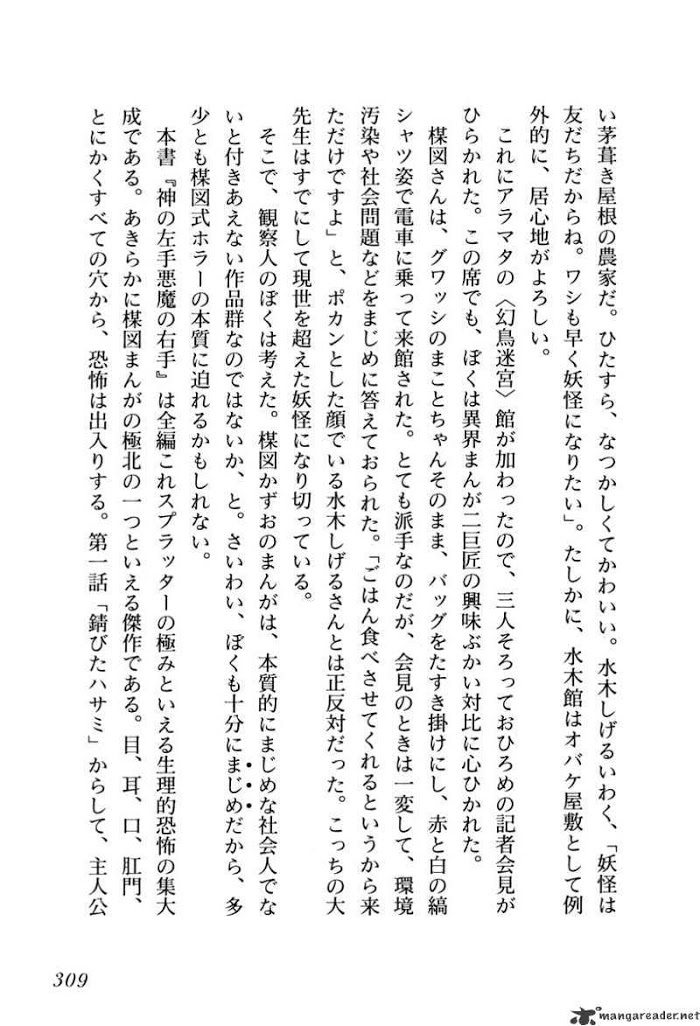 い茅葺き屋根の農家だ。ひたすら、なつかしくてかわいい。水木しげるいわく、「妖怪は
友だちだからね。ワシも早く妖怪になりたい」。たしかに、水木館はオバケ屋敷として例
外的に、居心地がよろしい。
これにアラマタの〈幻鳥迷宮〉館が加わったので、三人そろっておひろめの記者会見が
ひらかれた。この席でも、ぼくは異界まんが二巨匠の興味ぶかい対比に心ひかれた。
楳図さんは、グワッシのまことちゃんそのまま、バッグをたすき掛けにし、赤と白の縞
シャツ姿で電車に乗って来館された。とても派手なのだが、会見のときは一変して、環境
汚染や社会問題などをまじめに答えておられた。「ごはん食べさせてくれるというから来
ただけですよ」と、ポカンとした顔でいる水木しげるさんとは正反対だった。こっちの大
先生はすでにして現世を超えた妖怪になり切っている。
そこで、観察人のぼくは考えた。楳図かずおのまんがは、本質的にまじめな社会人でな
いと付きあえない作品群なのではないか、と。さいわい、ぼくも十分にまじめだから、多
少とも楳図式ホラーの本質に迫れるかもしれない。
本書『神の左手悪魔の右手』は全編これスプラッターの極みといえる生理的恐怖の集大
成である。あきらかに楳図まんがの極北の一つといえる傑作である。目、耳、口、肛門、
とにかくすべての穴から、恐怖は出入りする。第一話「錆びたハサミ」からして、主人公
309
mangareader.net